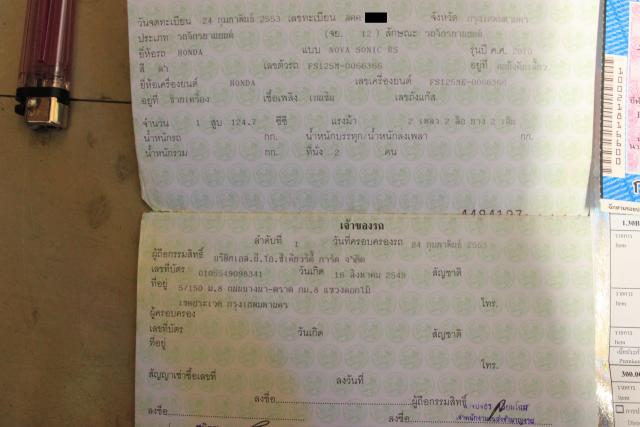 วันจดทะเบียน 24 กุมภาพันธ์ 2553 เลขทะเบียน จังหวัด กรุงเทพมหานคร
ประเภท รถจักรยานยนต์ (จย. 12) ลักษณะ รถจักรยานยนต์
ยี่ห้อรถ HONDA แบบ NOVA SONIC RS รุ่นปี ค.ศ. 2010
สี ดำ เลขตัวรถ FS125M-0066366 อยู่ที่
ยี่ห้อเครื่องยนต์ HONDA เลขเครื่องยนต์ FS125ME-0066366
อยู่ที่ ข้างเครื่อง เชื้อเพลิง เบนซิน เลขถังแก๊ส
จำนวน 1 สูบ 124.7 ซีซี แรงม้า 2 เพลา 2 ล้อ ยาง 2 เส้น
น้ำหนักรถ กก. น้ำหนักบรรทุก/น้ำหนักลงเพลา กก.
น้ำหนักรวม กก. ที่นั่ง 2 คน
เจ้าของรถ
ลำดับที่ 1 วันที่ครอบครองรถ 24 กุมภาพันธ์ 2553
ผู้ถือกรรมสิทธิ์
เลขที่บัตร 0105549098341 วันเกิด 16 สิงหาคม 2549 สัญชาติ
ที่อยู่ 5/150 ม.8 ถนนบางนา-ตราด กม.8 แขวงดอกไม้
เขตประเวศ กรุงเทพมหานคร โทร.
ผู้ครอบครอง
เลขที่บัตร วันเกิด สัญชาติ
ที่อยู่
โทร.
สัญญาเช่าซื้อเลขที่ ลงวันที่
ลงชื่อ ผู้ถือกรรมสิทธิ์
ลงชื่อ ลงชื่อ
1002816600
1.30B
รายการ
Item
รายการ
Item
300.00